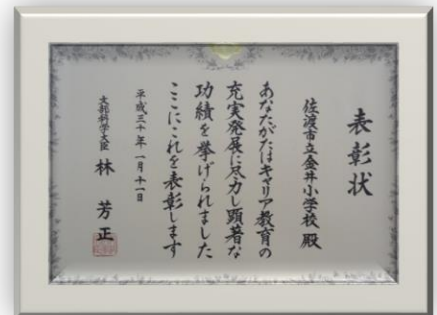 表彰状
佐渡市立金井小学校 殿
あなたがたはキャリア教育の
充実発展に尽力し顕著な
功績を挙げられました
ここにこれを表彰します
平成三十年一月十一日
文部科学大臣 林 芳正